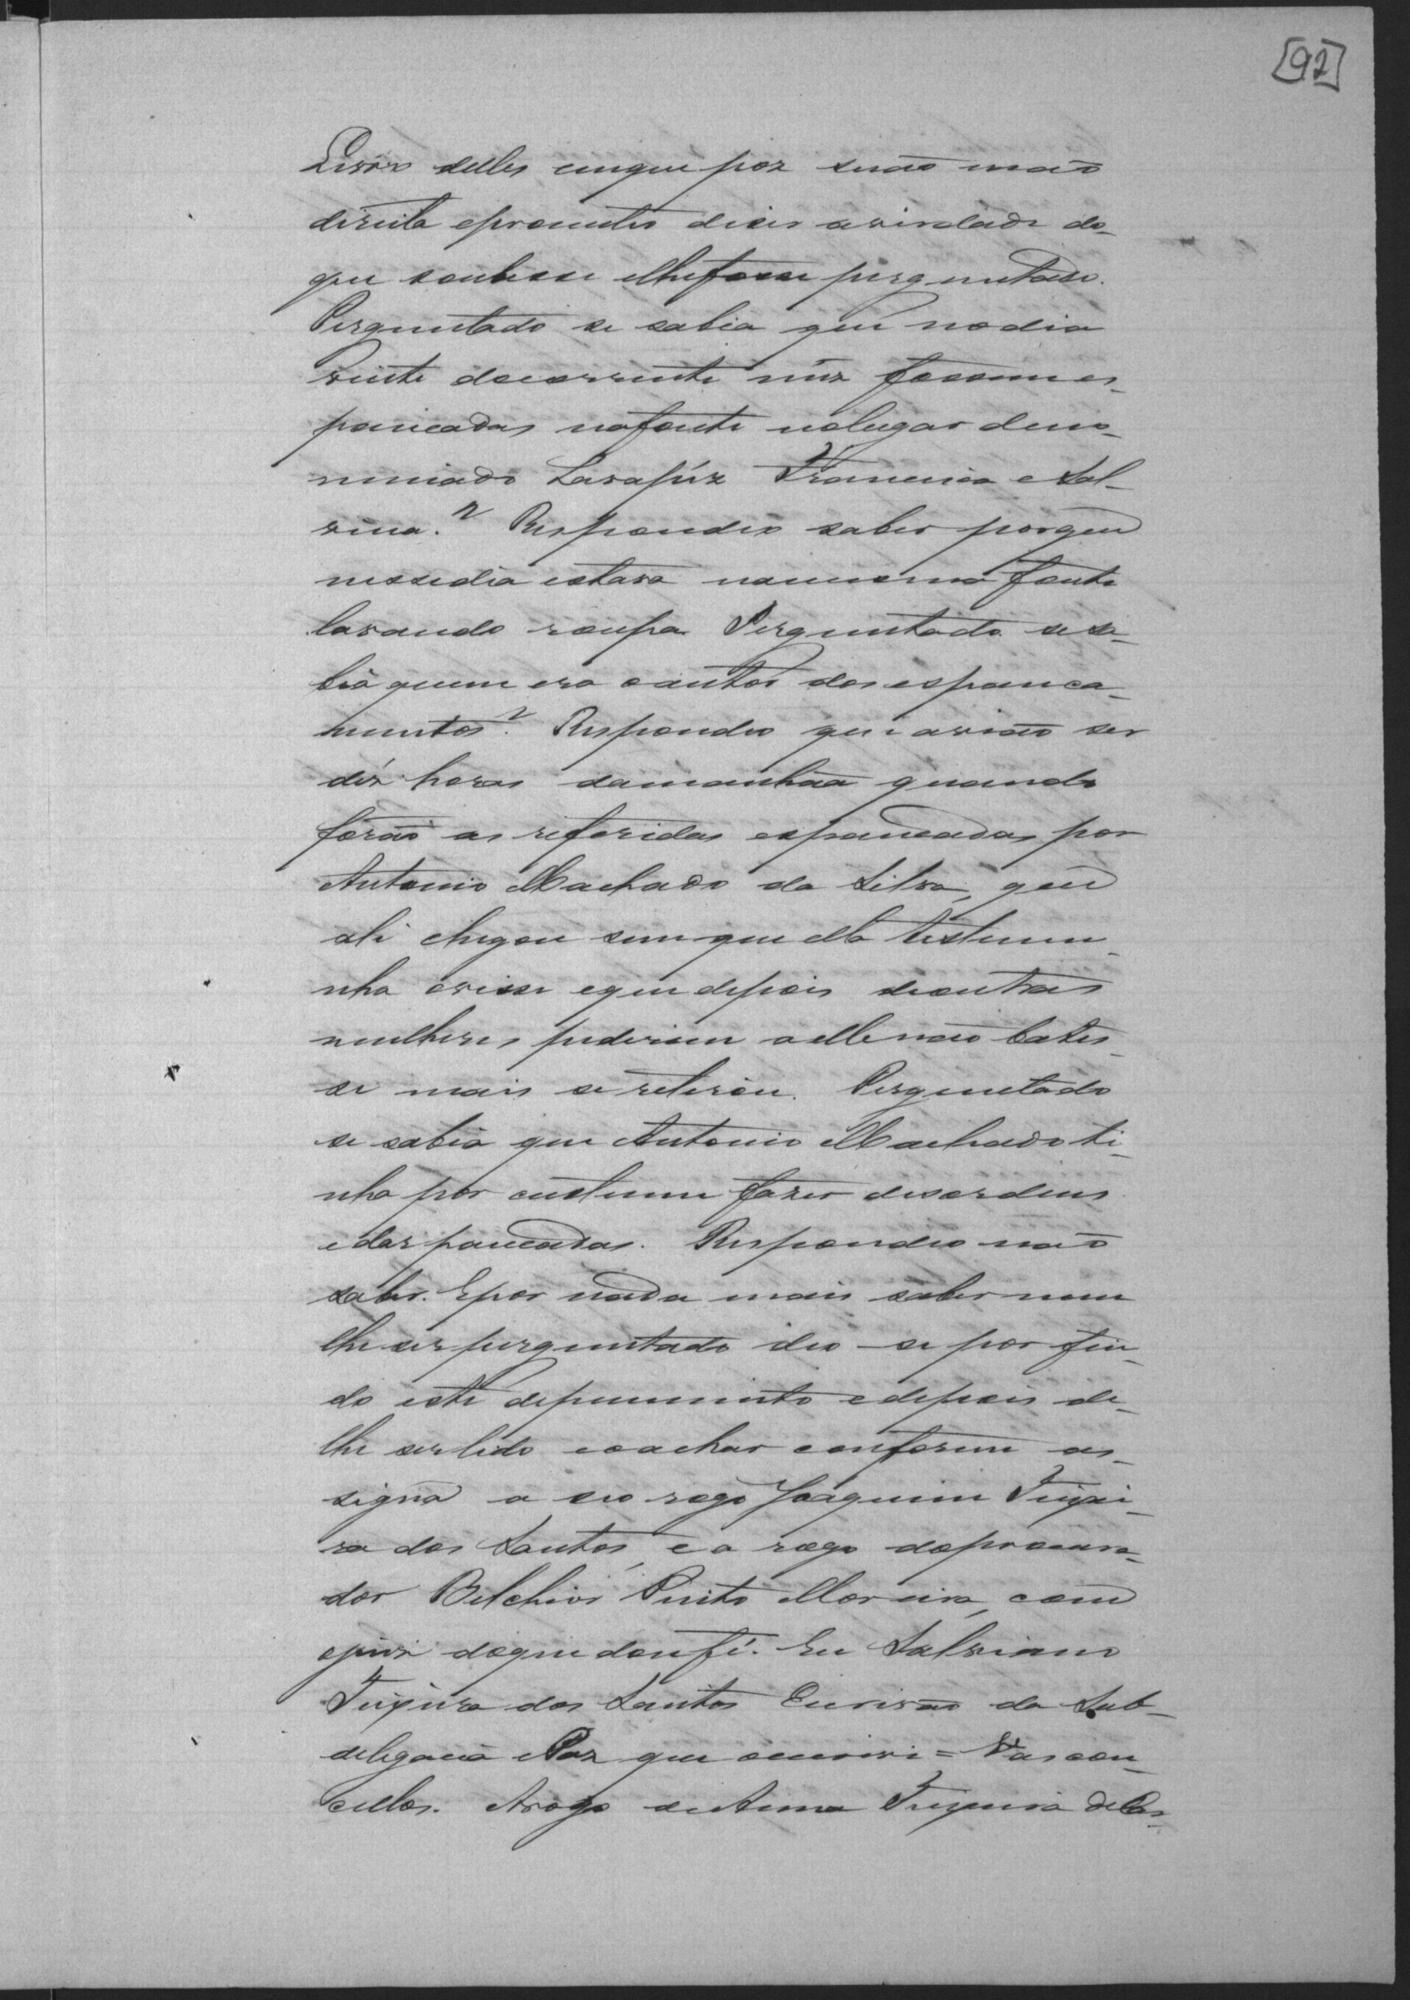 [92]
Livro delles em que poz sua mão
direita e prometeo diser a verdade do
que soubesse e lhe fosse perguntado.
Perguntado se sabia que no dia
vinte do corrente mez foram es-
pancadas na fonte no lugar deno-
minado Lavapéz Francisca e Sal-
vina.? Respondeo saber porque
nesse dia estava na mesma fonte
lavando roupa Perguntado se sa-
bia quem era o autor dos espanca-
mentos? Respondeo que avião ser
déz horas da manhãa quando
forão as referidas espancadas por
Antonio Machado da Silva, que
ali chegou sem que ella testemu-
nha visse e que depois de outras
mulheres pedirem a elle não bates-
se mais se retirou. Perguntado
se sabia que Antonio Machado ti-
nha por custume fazer desordens
e dar pancadas. Respondeo não
saber. E por nada mais saber nem
lhe ser perguntado deo-se por fin-
do este depuimento e depois de
lhe ser lido e o achar conforme as-
signa a seo rogo Joaquim Teixei-
ra dos Santos, e a rogo do procura-
dor Belchior Pinto Moreira, com
o juiz do que dou fé. Eu Salviano
Teixeira dos Santos Escrivão da Sub-
delegacia e Paz que escrevi = Vascon-
cellos. Arogo de Anna Teixeira de Cas-